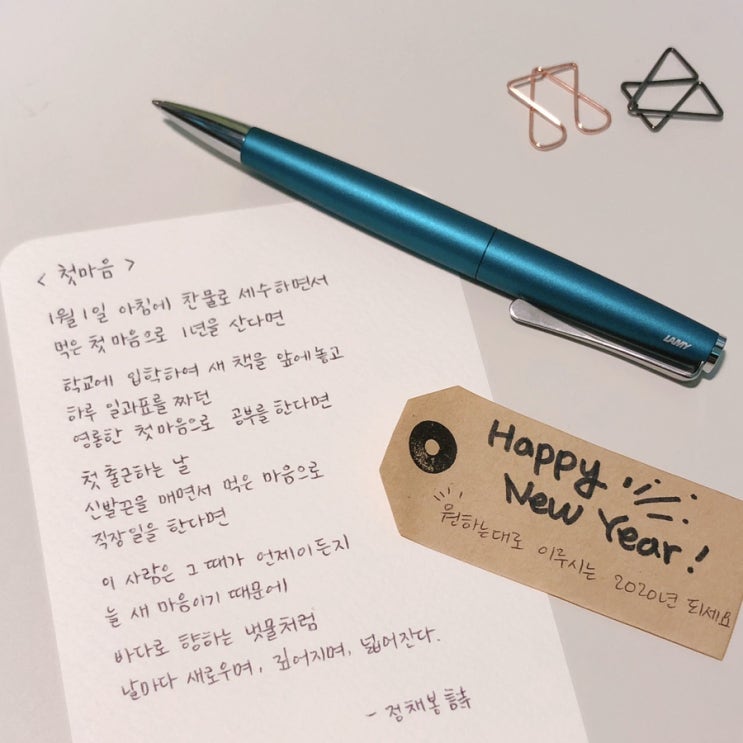 < 첫마음 >
1월 1일 아침에 찬물로 세수하면서
먹은 첫 마음으로 1년을 산다면
학교에 입학하여 새 책을 앞에놓고
하루 일과표를 짜던
영롱한 첫마음으로 공부를 한다면
첫 출근하는 날
신발끈을 매면서 먹은 마음으로
직장일을 한다면
이 사람은 그 때가 언제이든지
늘 새 마음이기 때문에
바다로 향하는 냇물처럼
날마다 새로우며, 깊어지며, 넓어진다.
- 정채봉 詩
LAMY
Happy
New Year!
원하는대로 이루시는 2020년 되세요